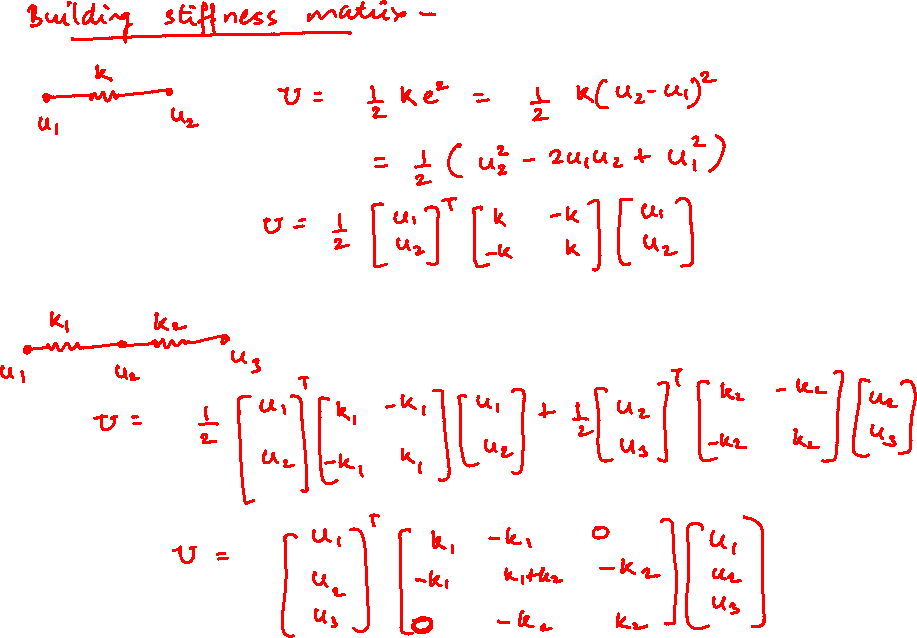 Building stiffness matrix -
k
u₁ u₂
U = 1/2 k e² = 1/2 k(u₂-u₁)²
= 1/2 (u₂² - 2u₁u₂ + u₁²)
U = 1/2 [u₁; u₂]ᵀ [k -k; -k k] [u₁; u₂]
k₁ k₂
u₁ u₂ u₃
U = 1/2 [u₁; u₂]ᵀ [k₁ -k₁; -k₁ k₁] [u₁; u₂] + 1/2 [u₂; u₃]ᵀ [k₂ -k₂; -k₂ k₂] [u₂; u₃]
U = [u₁; u₂; u₃]ᵀ [k₁ -k₁ 0; -k₁ k₁+k₂ -k₂; 0 -k₂ k₂] [u₁; u₂; u₃]